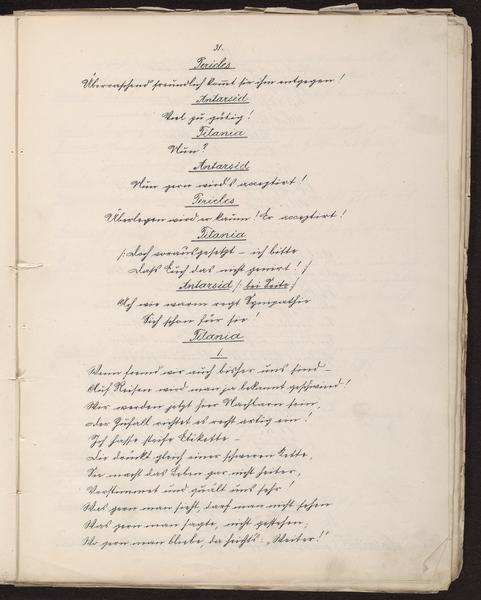 31.
Pericles
Überraschend freundlich kommt sie ihm entgegen!
Antarsid
Viel zu gütig!
Titania
Nun?
Antarsid
Nun gern wird's acceptirt!
Pericles
Überlegen wird er kaum! Er acceptirt!
Titania
/: Doch vorausgesetzt – ich bitte
Daß Euch das nicht genirt! :/
Antarsid /: bei Seite :/
Ach wie warm regt Sympathie
Sich schon für sie!
Titania
1.
Wenn fremd wir auch bisher uns sind –
Auf Reisen wird man ja bekannt geschwind!
Wir werden jetzt hier Nachbarn sein,
Der Zufall richtet es recht artig ein!
Ich hasse steife Etikette –
Die drückt gleich einer schweren Kette,
Sie macht das Leben gar nicht heiter,
Verstimmet und quält uns sehr!
Was gern man sieht, darf man nicht sehen
Was gern man sagte, nicht gestehen,
Wo gern man bliebe, da heißts: „Weiter!"